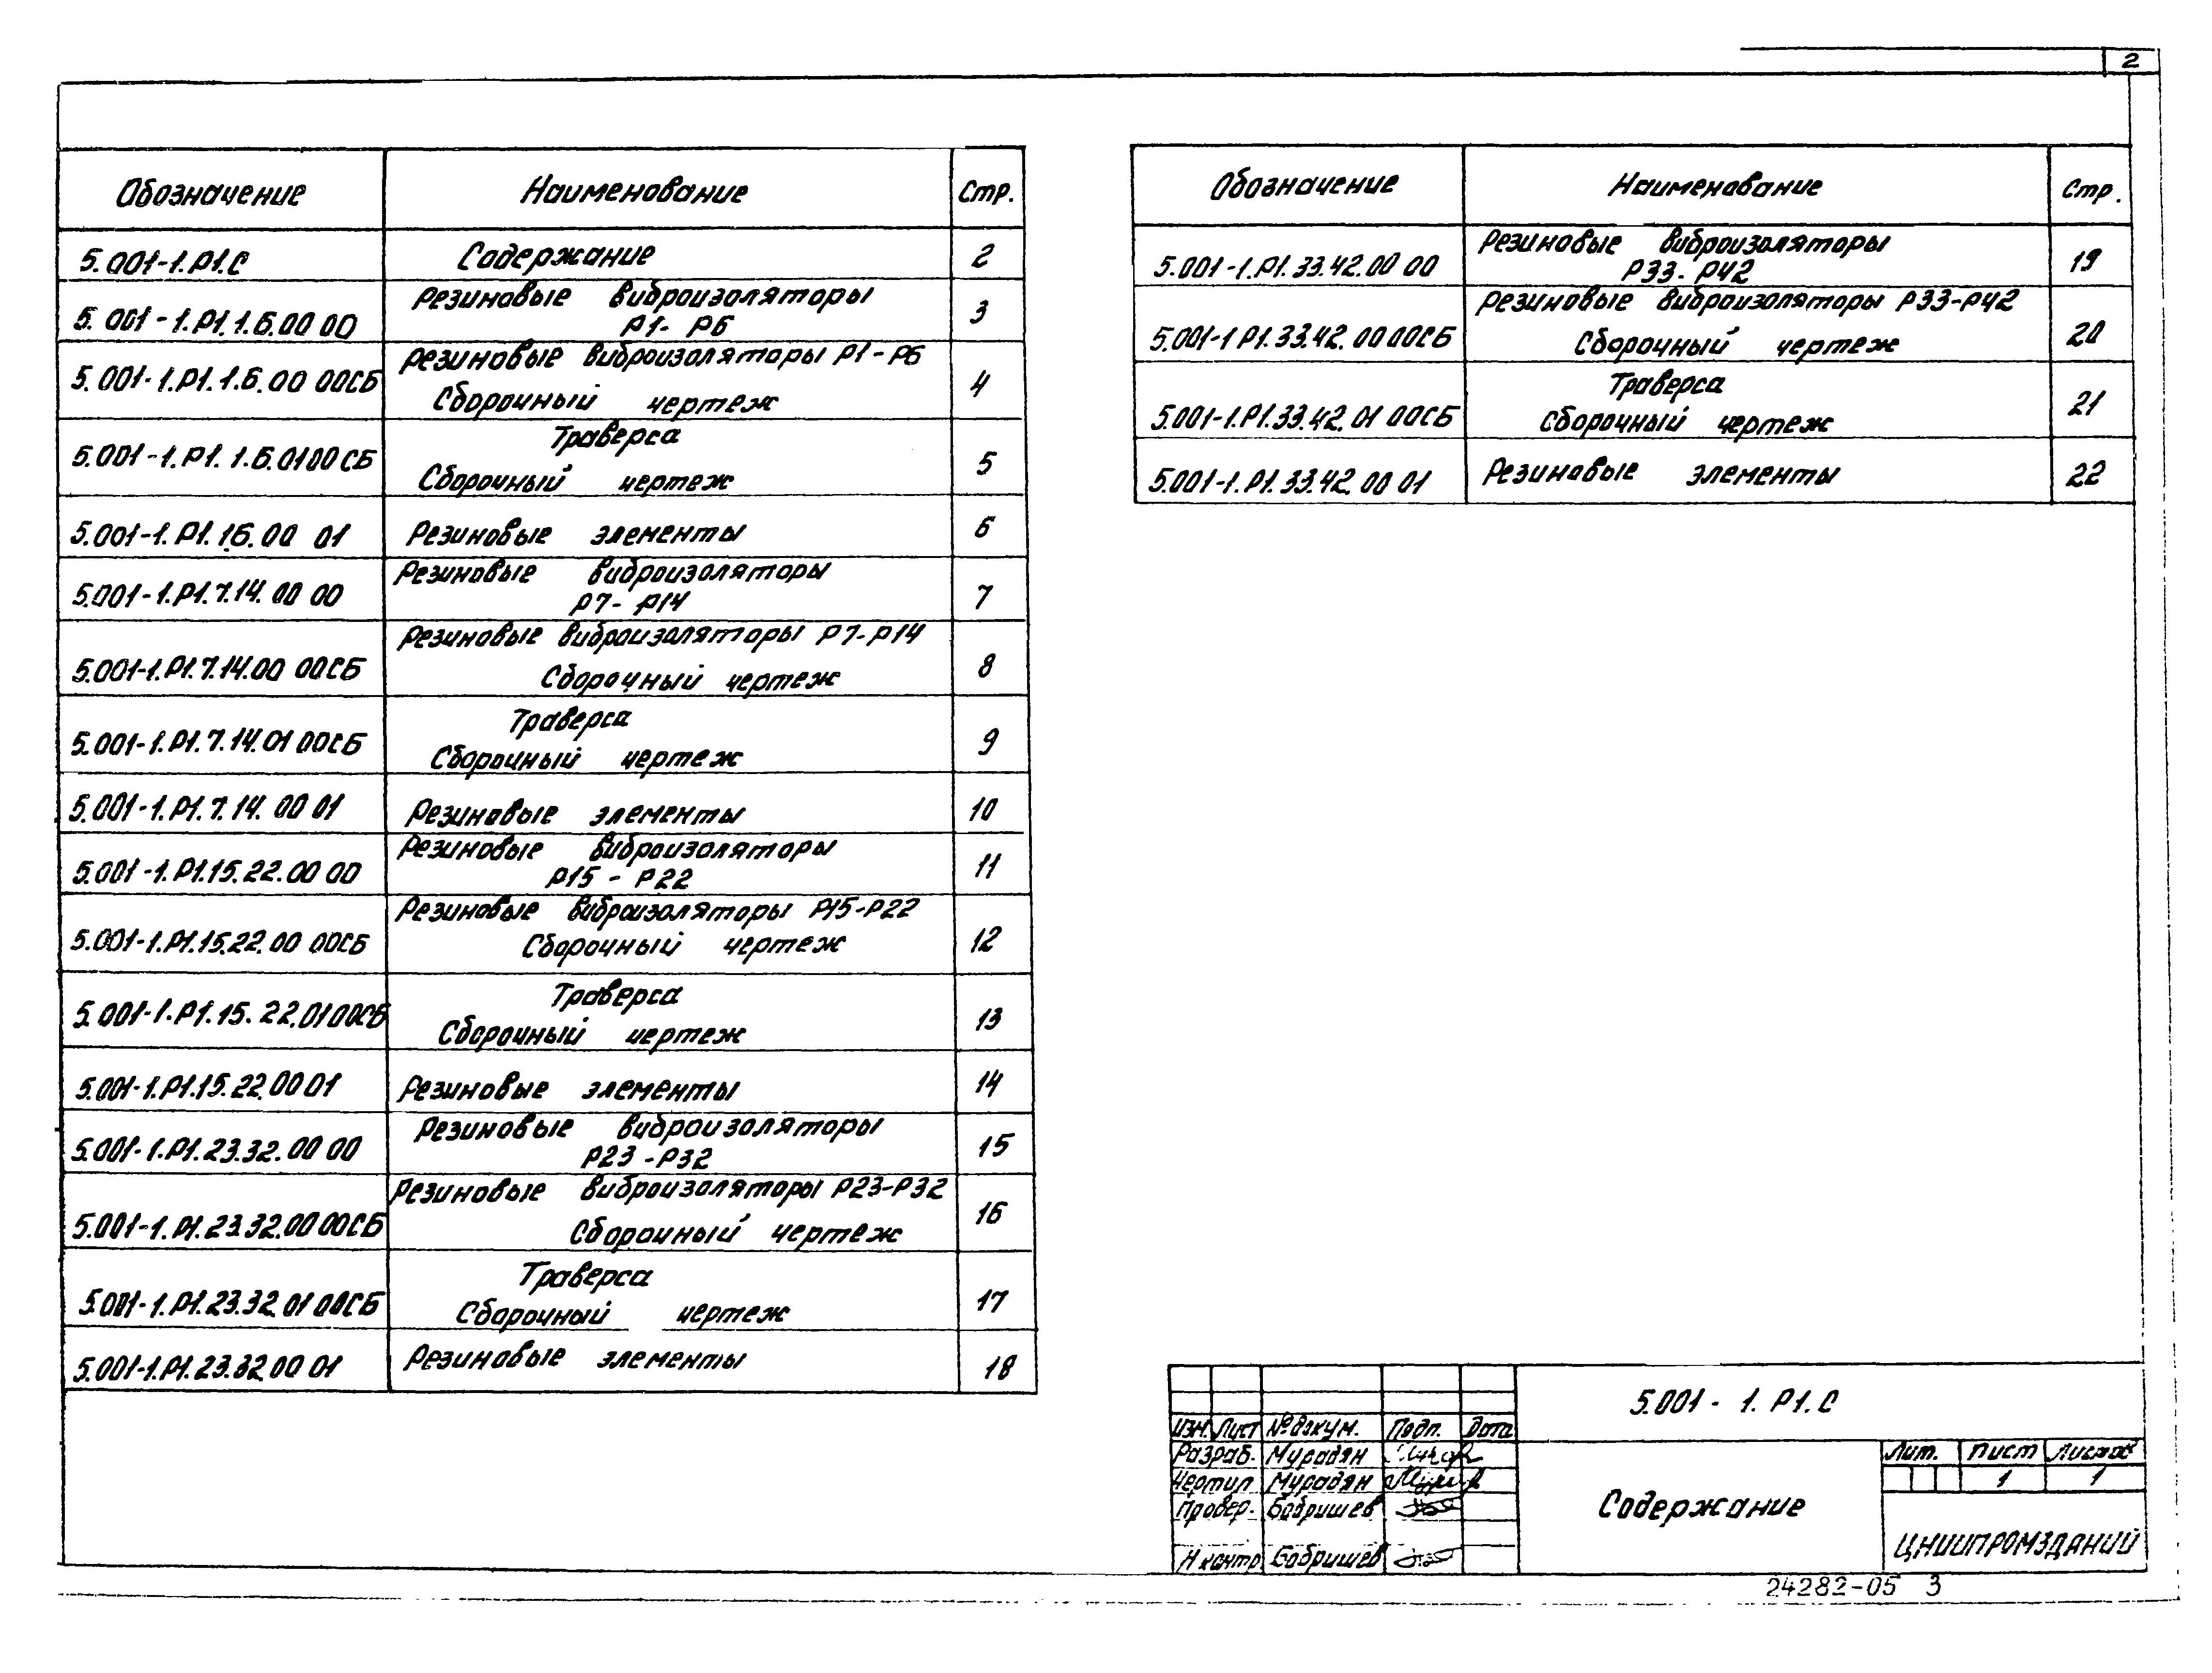 2
Обозначение Наименование Стр.
5.001-1.Р1.С Содержание 2
5.001-1.Р1.1.6.00 00 Резиновые виброизоляторы
Р1- Р6 3
5.001-1.Р1.1.6.00 00СБ Резиновые виброизоляторы Р1-Р6
Сборочный чертеж 4
5.001-1.Р1.1.6.01 00СБ Траверса
Сборочный чертеж 5
5.001-1.Р1.1.6.00 01 Резиновые элементы 6
5.001-1.Р1.7.14.00 00 Резиновые виброизоляторы
Р7- Р14 7
5.001-1.Р1.7.14.00 00СБ Резиновые виброизоляторы Р7-Р14
Сборочный чертеж 8
5.001-1.Р1.7.14.01 00СБ Траверса
Сборочный чертеж 9
5.001-1.Р1.7.14.00 01 Резиновые элементы 10
5.001-1.Р1.15.22.00 00 Резиновые виброизоляторы
Р15 - Р22 11
5.001-1.Р1.15.22.00 00СБ Резиновые виброизоляторы Р15-Р22
Сборочный чертеж 12
5.001-1.Р1.15.22.01 00СБ Траверса
Сборочный чертеж 13
5.001-1.Р1.15.22.00 01 Резиновые элементы 14
5.001-1.Р1.23.32.00 00 Резиновые виброизоляторы
Р23 -Р32 15
5.001-1.Р1.23.32.00 00СБ Резиновые виброизоляторы Р23-Р32
Сборочный чертеж 16
5.001-1.Р1.23.32.01 00СБ Траверса
Сборочный чертеж 17
5.001-1.Р1.23.32.00 01 Резиновые элементы 18
Обозначение Наименование Стр.
5.001-1.Р1.33.42.00 00 Резиновые виброизоляторы
Р33- Р42 19
5.001-1 Р1.33.42.00 00СБ Резиновые виброизоляторы Р33-Р42
Сборочный чертеж 20
5.001-1.Р1.33.42.01 00СБ Траверса
Сборочный чертеж 21
5.001-1.Р1.33.42.00 01 Резиновые элементы 22
5.001 - 1. Р1. С
Изм. Лист № докум. Подп. Дата
Разраб. Мурадян
Чертил Мурадян
Провер. Бобришев
Н контр Бобришев
Содержание
Лит. Лист Листов
1 1
ЦНИИПРОМЗДАНИЙ
24282-05 3